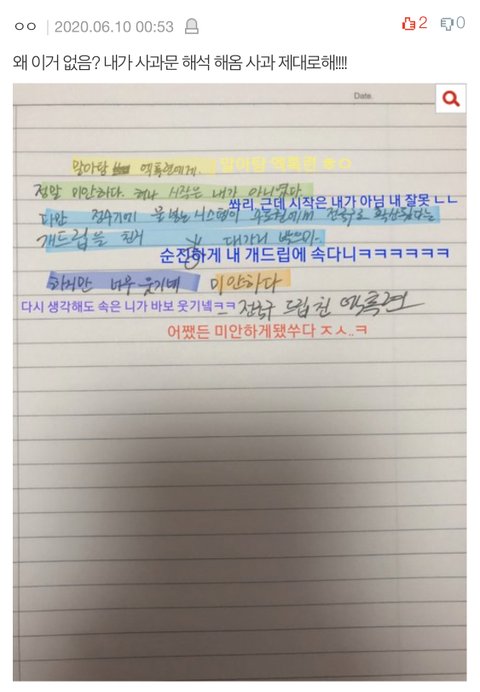 ㅇㅇ 2020.06.10 00:53 2 0
왜 이거 없음? 내가 사과문 해석 해옴 사과 제대로해!!!!
Date.
말아담 엑톡련에게. 말아담 엑톡련 ㅎㅇ
정말 미안하다. 허나 시작은 내가 아니었다
쏴리, 근데 시작은 내가 아님 내 잘못 ㄴㄴ
다만 전국구로 확산된다는
개드립을 친거 대가리 박으마.
순진하게 내 개드립에 속다니ㅋㅋㅋㅋㅋㅋ
하지만 너무 웃기네 미안하다
다시 생각해도 속은 니가 바보 웃기넼ㅋㅋ
- 전국구 드립 친 엑톡련
어쨌든 미안하게됐쑤다 ㅈㅅ..ㅋ